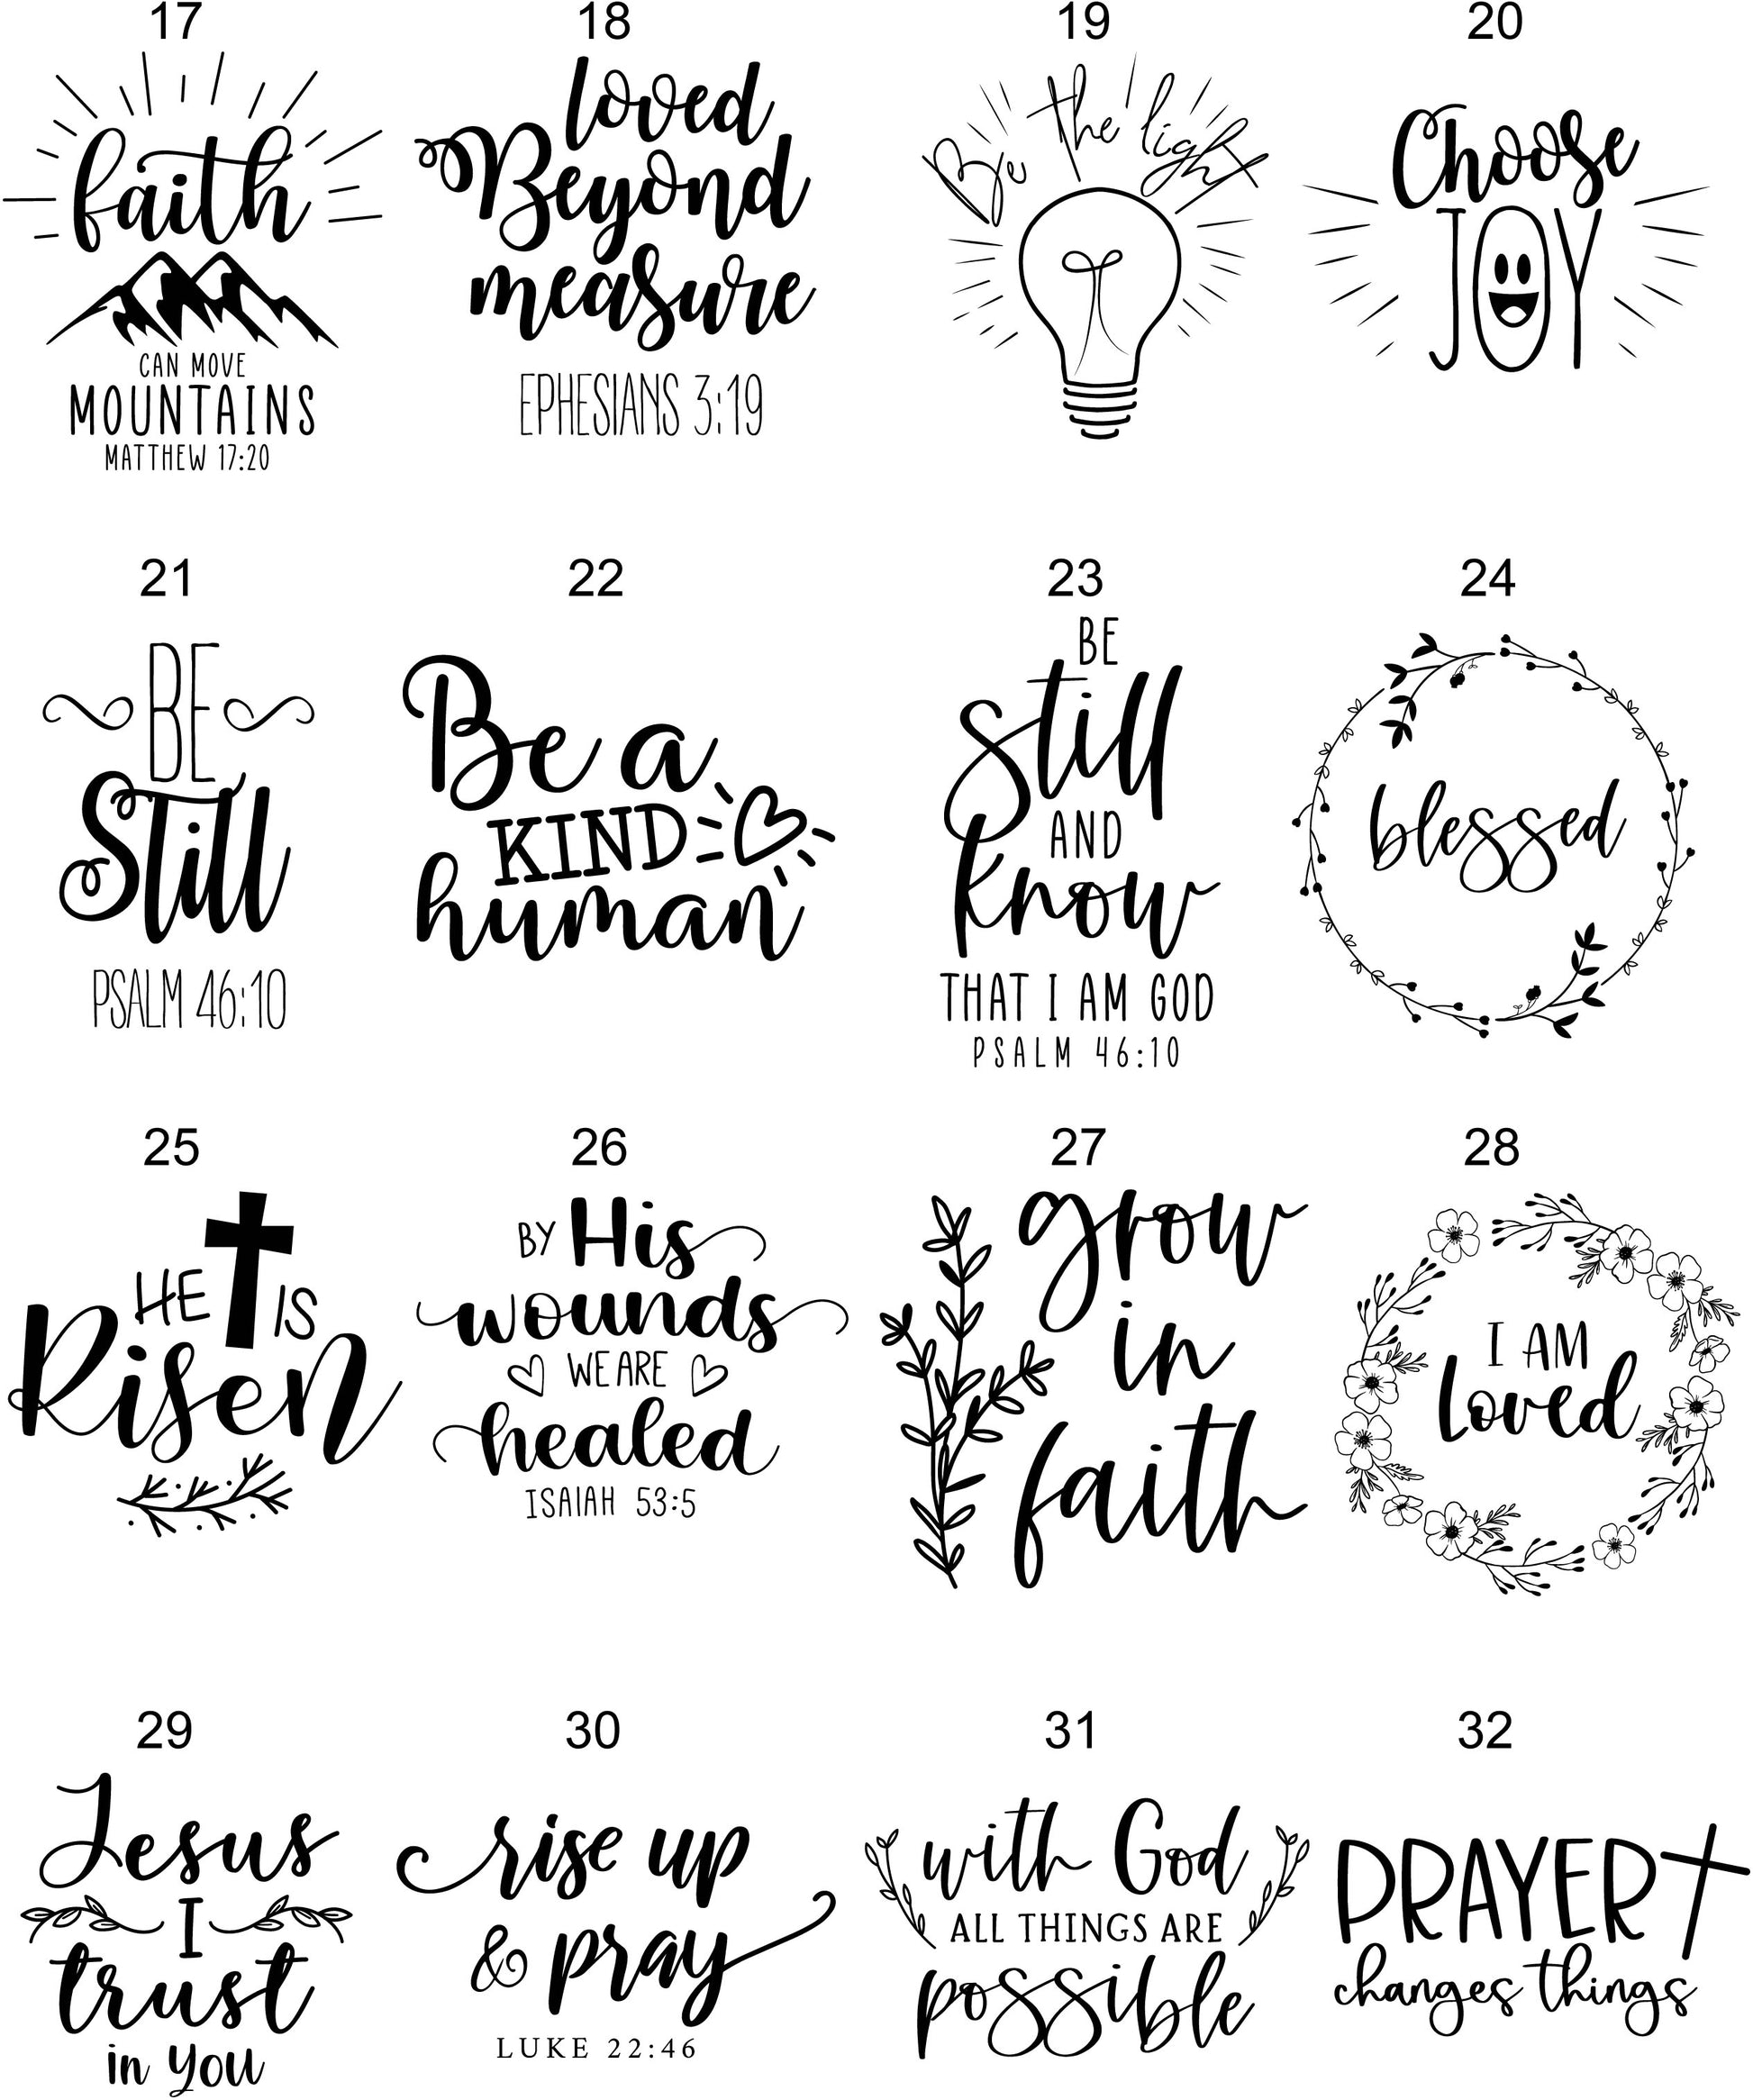 17
faith
CAN MOVE
MOUNTAINS
MATTHEW 17:20
18
loved
Beyond
measure
EPHESIANS 3:19
19
Be the light
20
Choose
JOY
21
BE
Still
PSALM 46:10
22
Be a
KIND
human
23
BE
still
AND
know
THAT I AM GOD
PSALM 46:10
24
blessed
25
HE IS
Risen
26
BY His
wounds
WE ARE
healed
ISAIAH 53:5
27
grow
in
faith
28
I AM
loved
29
Jesus
I
trust
in you
30
rise up
& pray
LUKE 22:46
31
with God
ALL THINGS ARE
possible
32
PRAYER
changes things